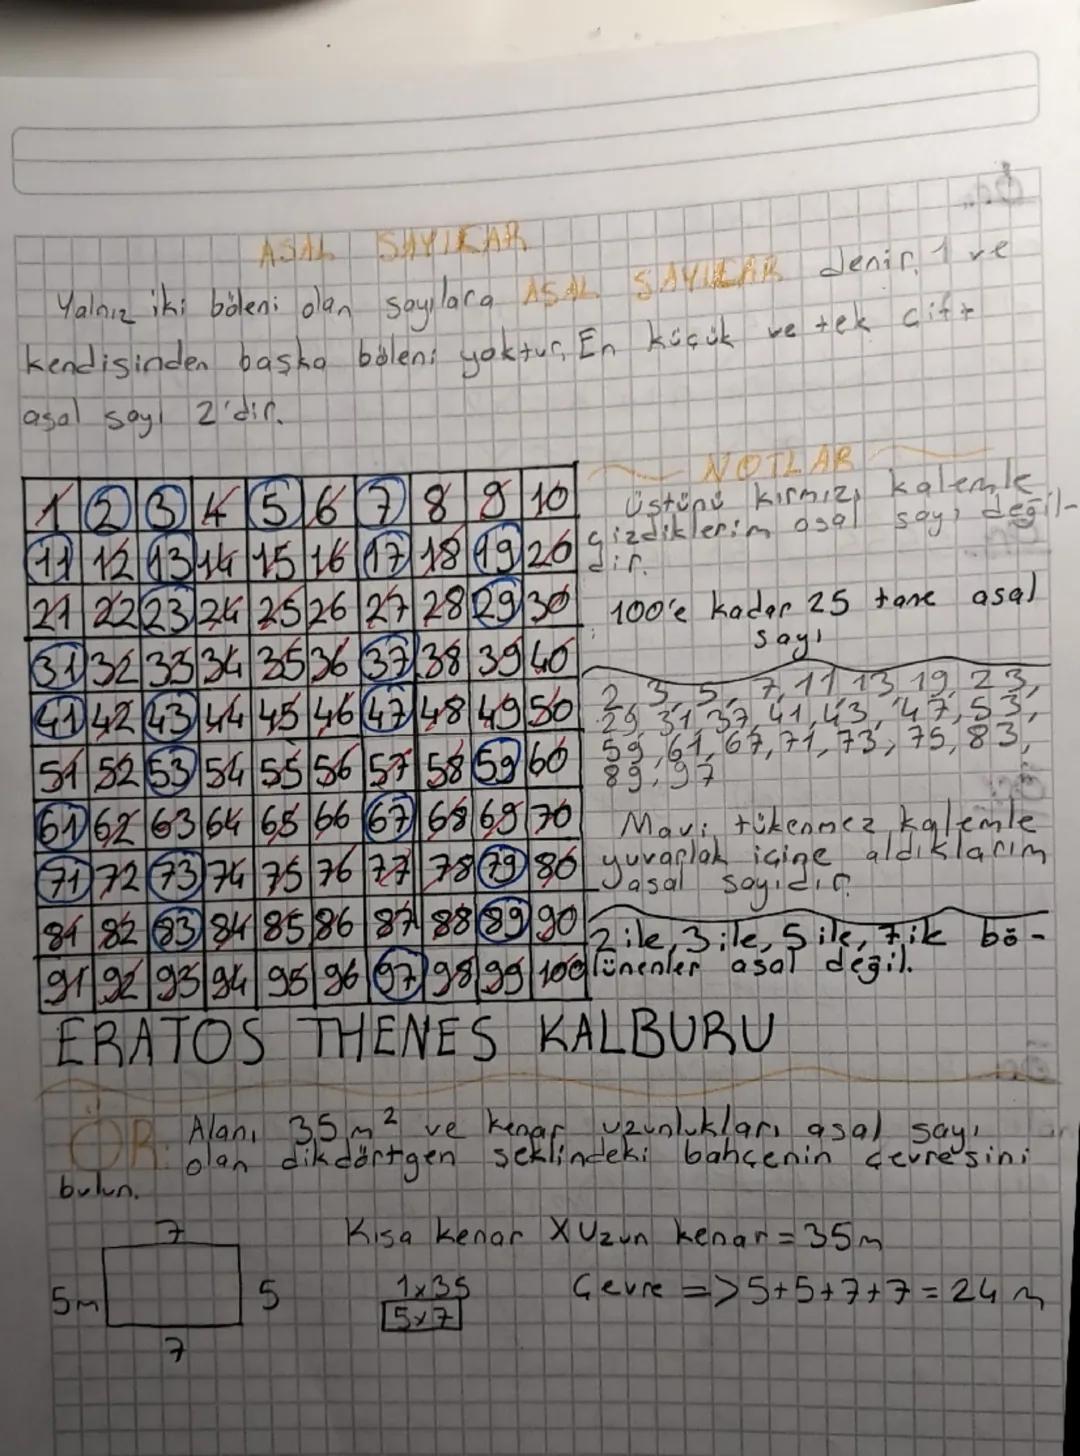 ASAL SAYILAR
Yalnız iki böleni olan sayılara ASAL SAYILAR denir. 1 ve
kendisinden başka böleni yoktur. En küçük ve tek çift
asal sayı 2'dir.
1 2 3 4 5 6 7 8 9 10
11 12 13 14 15 16 17 18 19 20
21 22 23 24 25 26 27 28 29 30
31 32 33 34 35 36 37 38 39 40
41 42 43 44 45 46 47 48 49 50
51 52 53 54 55 56 57 58 59 60
61 62 63 64 65 66 67 68 69 70
71 72 73 74 75 76 77 78 79 80
81 82 83 84 85 86 87 88 89 90
91 92 93 94 95 96 97 98 99 100
NOTLAR
Üstünü kırmızı kalemle
çizdiklerim asal sayı değil-
dir.
100'e kadar 25 tane asal
sayı
2, 3, 5, 7, 11, 13, 19, 23,
29, 31, 37, 41, 43, 47, 53,
59, 61, 67, 71, 73, 75, 83,
89, 97
Mavi tükenmez kalemle
yuvarlak içine aldıklarım
asal sayıdır.
2 ile, 3 ile, 5 ile, 7 ile bö-
lünenler asal değil.
ERATOS THENES KALBURU
ÖR: Alanı 35 m² ve kenar uzunlukları asal sayı
olan dikdörtgen şeklindeki bahçenin çevresini
bulun.
7
Kısa kenar X Uzun kenar = 35m
5m 5
1x35
Çevre => 5+5+7+7 = 24 m
5x7
7